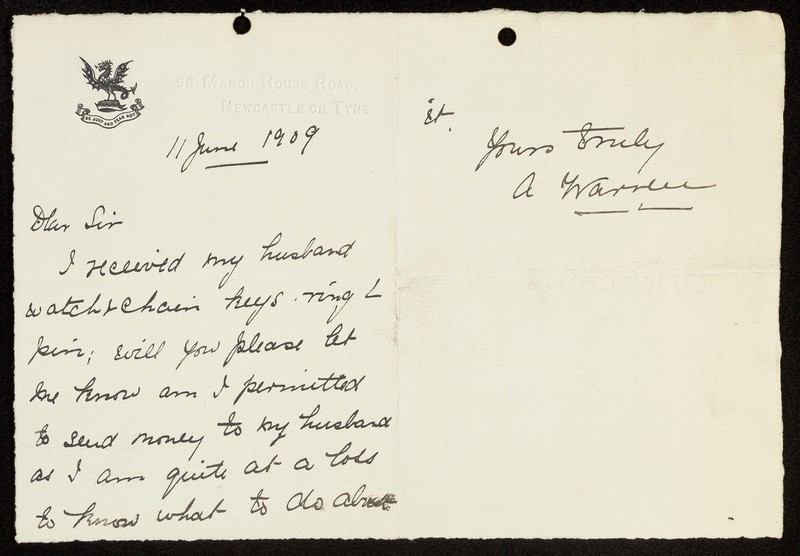 BE JUST AND FEAR NOT
66 MANOR HOUSE ROAD,
NEWCASTLE ON TYNE.
11 June 1909
Dear Sir
I received my husband
watch & chain keys. ring &
pin; will you please let
me know am I permitted
to send money to my husband
as I am quite at a loss
to know what to do about
it.
Yours Truly
A Warren